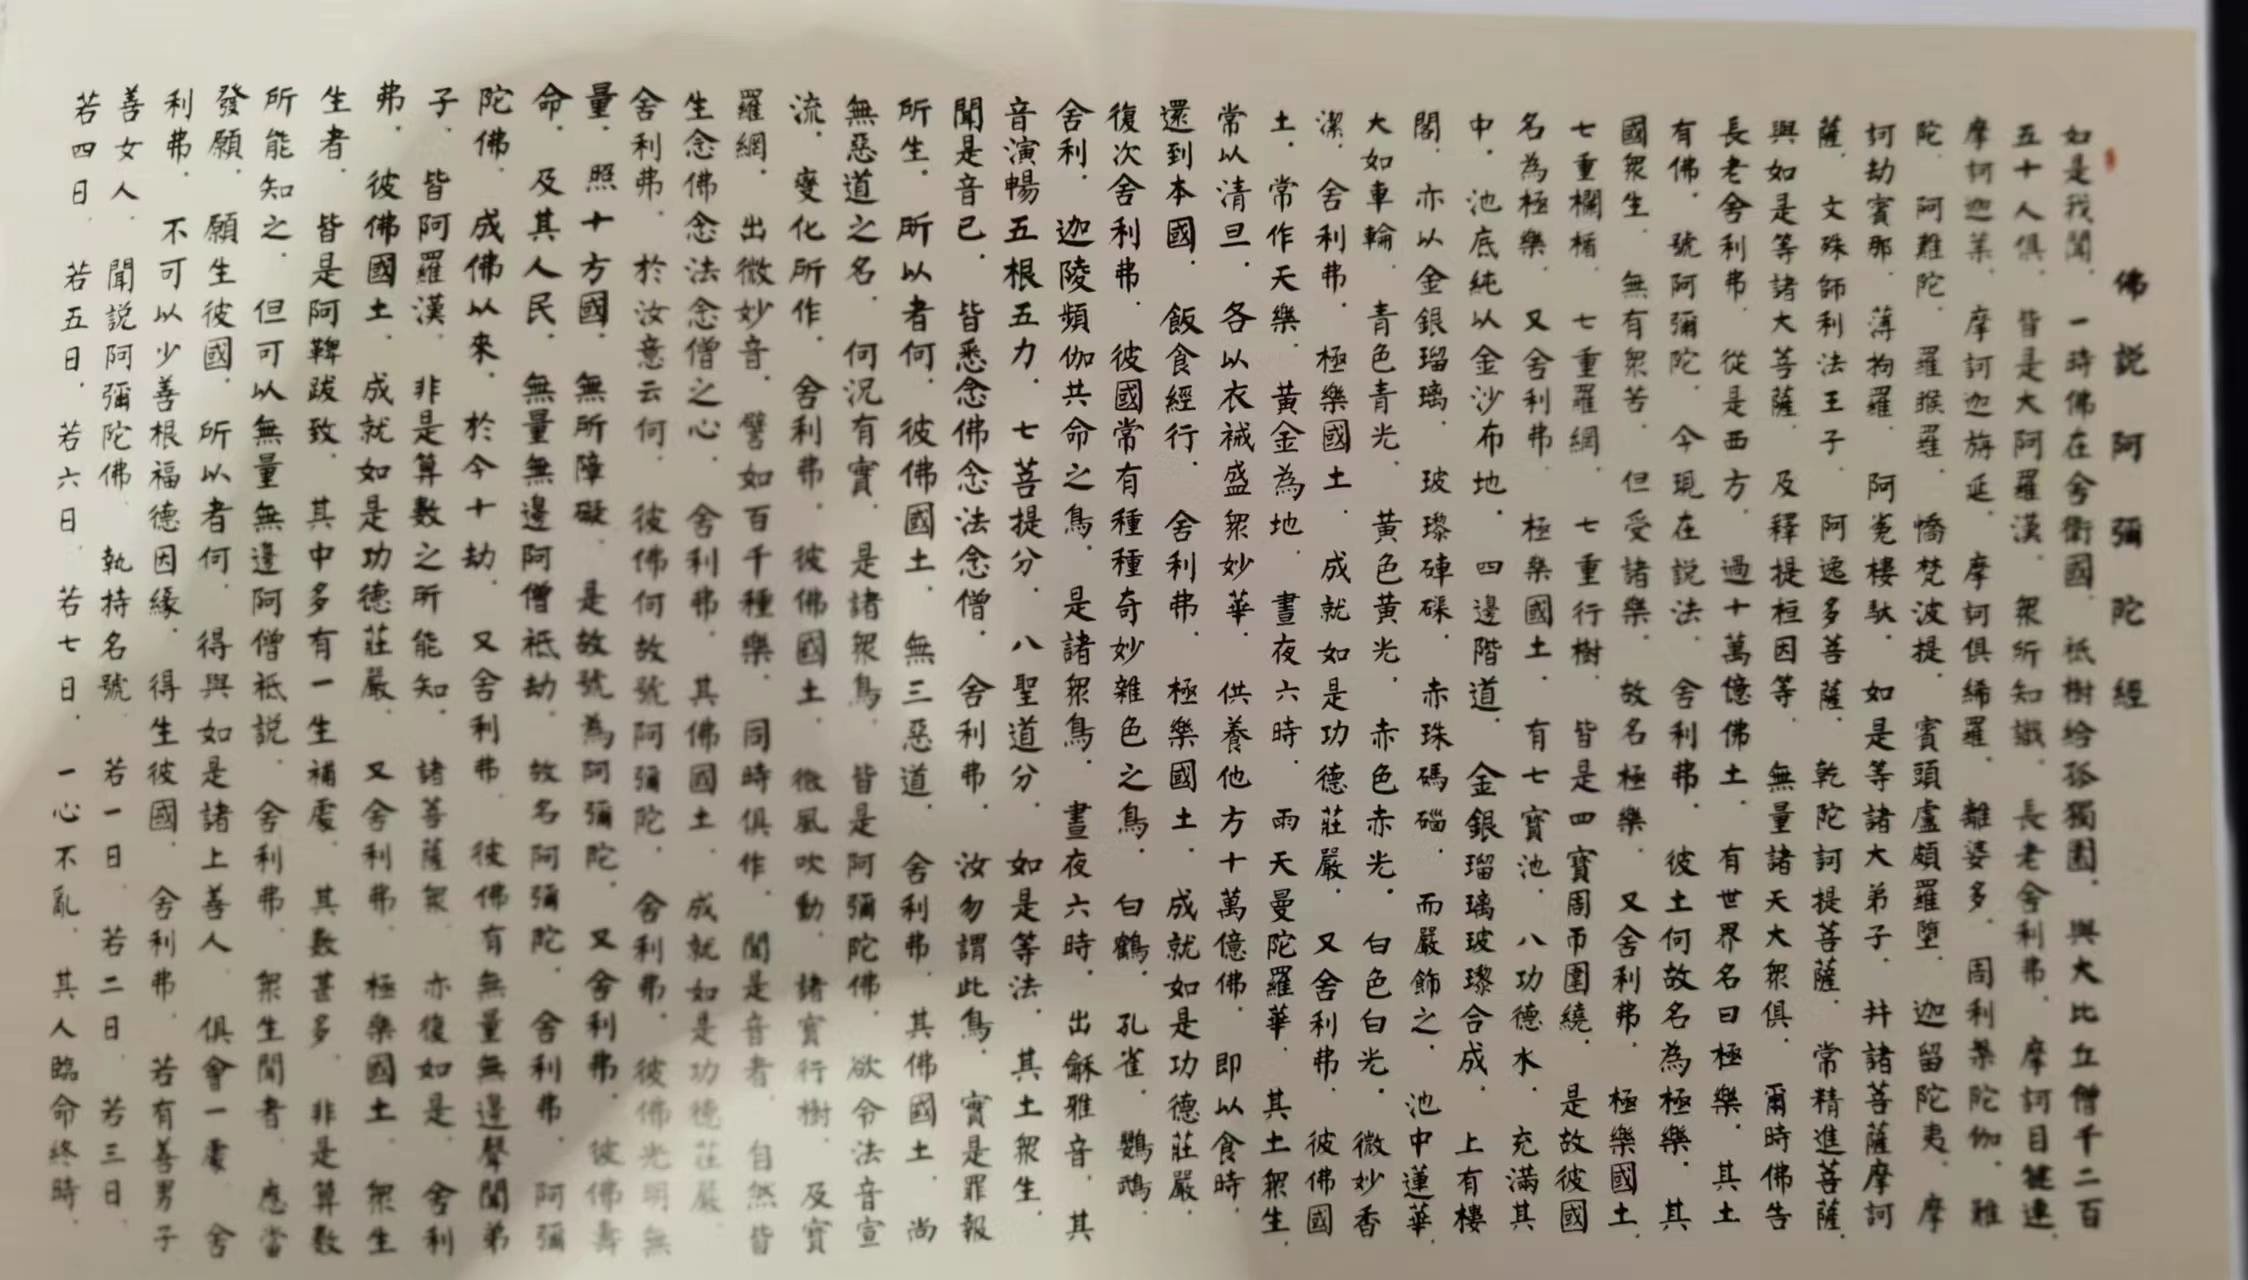 佛説阿彌陀經
如是我聞．一時佛在舍衛國．祇樹給孤獨園．與大比丘僧千二百
五十人俱．皆是大阿羅漢．衆所知識．長老舍利弗．摩訶目犍連．
摩訶迦葉．摩訶迦旃延．摩訶俱絺羅．離婆多．周利槃陀伽．難
陀．阿難陀．羅睺羅．憍梵波提．賓頭盧頗羅墮．迦留陀夷．摩
訶劫賓那．薄拘羅．阿㝹樓馱．如是等諸大弟子．并諸菩薩摩訶
薩．文殊師利法王子．阿逸多菩薩．乾陀訶提菩薩．常精進菩薩．
與如是等諸大菩薩．及釋提桓因等．無量諸天大衆俱．爾時佛告
長老舍利弗．從是西方．過十萬億佛土．有世界名曰極樂．其土
有佛．號阿彌陀．今現在説法．舍利弗．彼土何故名為極樂．其
國衆生．無有衆苦．但受諸樂．故名極樂．又舍利弗．極樂國土．
七重欄楯．七重羅網．七重行樹．皆是四寶周帀圍繞．是故彼國
名為極樂．又舍利弗．極樂國土．有七寶池．八功德水．充滿其
中．池底純以金沙布地．四邊階道．金銀瑠璃玻瓈合成．上有樓
閣．亦以金銀瑠璃．玻瓈硨磲．赤珠碼碯．而嚴飾之．池中蓮華．
大如車輪．青色青光．黃色黃光．赤色赤光．白色白光．微妙香
潔．舍利弗．極樂國土．成就如是功德莊嚴．又舍利弗．彼佛國
土．常作天樂．黃金為地．晝夜六時．雨天曼陀羅華．其土衆生．
常以清旦．各以衣裓盛衆妙華．供養他方十萬億佛．即以食時．
還到本國．飯食經行．舍利弗．極樂國土．成就如是功德莊嚴．
復次舍利弗．彼國常有種種奇妙雜色之鳥．白鶴．孔雀．鸚鵡．
舍利．迦陵頻伽共命之鳥．是諸衆鳥．晝夜六時．出龢雅音．其
音演暢五根五力．七菩提分．八聖道分．如是等法．其土衆生．
聞是音已．皆悉念佛念法念僧．舍利弗．汝勿謂此鳥．實是罪報
所生．所以者何．彼佛國土．無三惡道．舍利弗．其佛國土．尚
無惡道之名．何況有實．是諸衆鳥．皆是阿彌陀佛．欲令法音宣
流．變化所作．舍利弗．彼佛國土．微風吹動．諸寶行樹．及寶
羅網．出微妙音．譬如百千種樂．同時俱作．聞是音者．自然皆
生念佛念法念僧之心．舍利弗．其佛國土．成就如是功德莊嚴．
舍利弗．於汝意云何．彼佛何故號阿彌陀．舍利弗．彼佛光明無
量．照十方國．無所障礙．是故號為阿彌陀．又舍利弗．彼佛壽
命．及其人民．無量無邊阿僧祇劫．故名阿彌陀．舍利弗．阿彌
陀佛．成佛以來．於今十劫．又舍利弗．彼佛有無量無邊聲聞弟
子．皆阿羅漢．非是算數之所能知．諸菩薩衆．亦復如是．舍利
弗．彼佛國土．成就如是功德莊嚴．又舍利弗．極樂國土．衆生
生者．皆是阿鞞跋致．其中多有一生補處．其數甚多．非是算數
所能知之．但可以無量無邊阿僧祇説．舍利弗．衆生聞者．應當
發願．願生彼國．所以者何．得與如是諸上善人．俱會一處．舍
利弗．不可以少善根福德因緣．得生彼國．舍利弗．若有善男子
善女人．聞説阿彌陀佛．執持名號．若一日．若二日．若三日．
若四日．若五日．若六日．若七日．一心不亂．其人臨命終時．